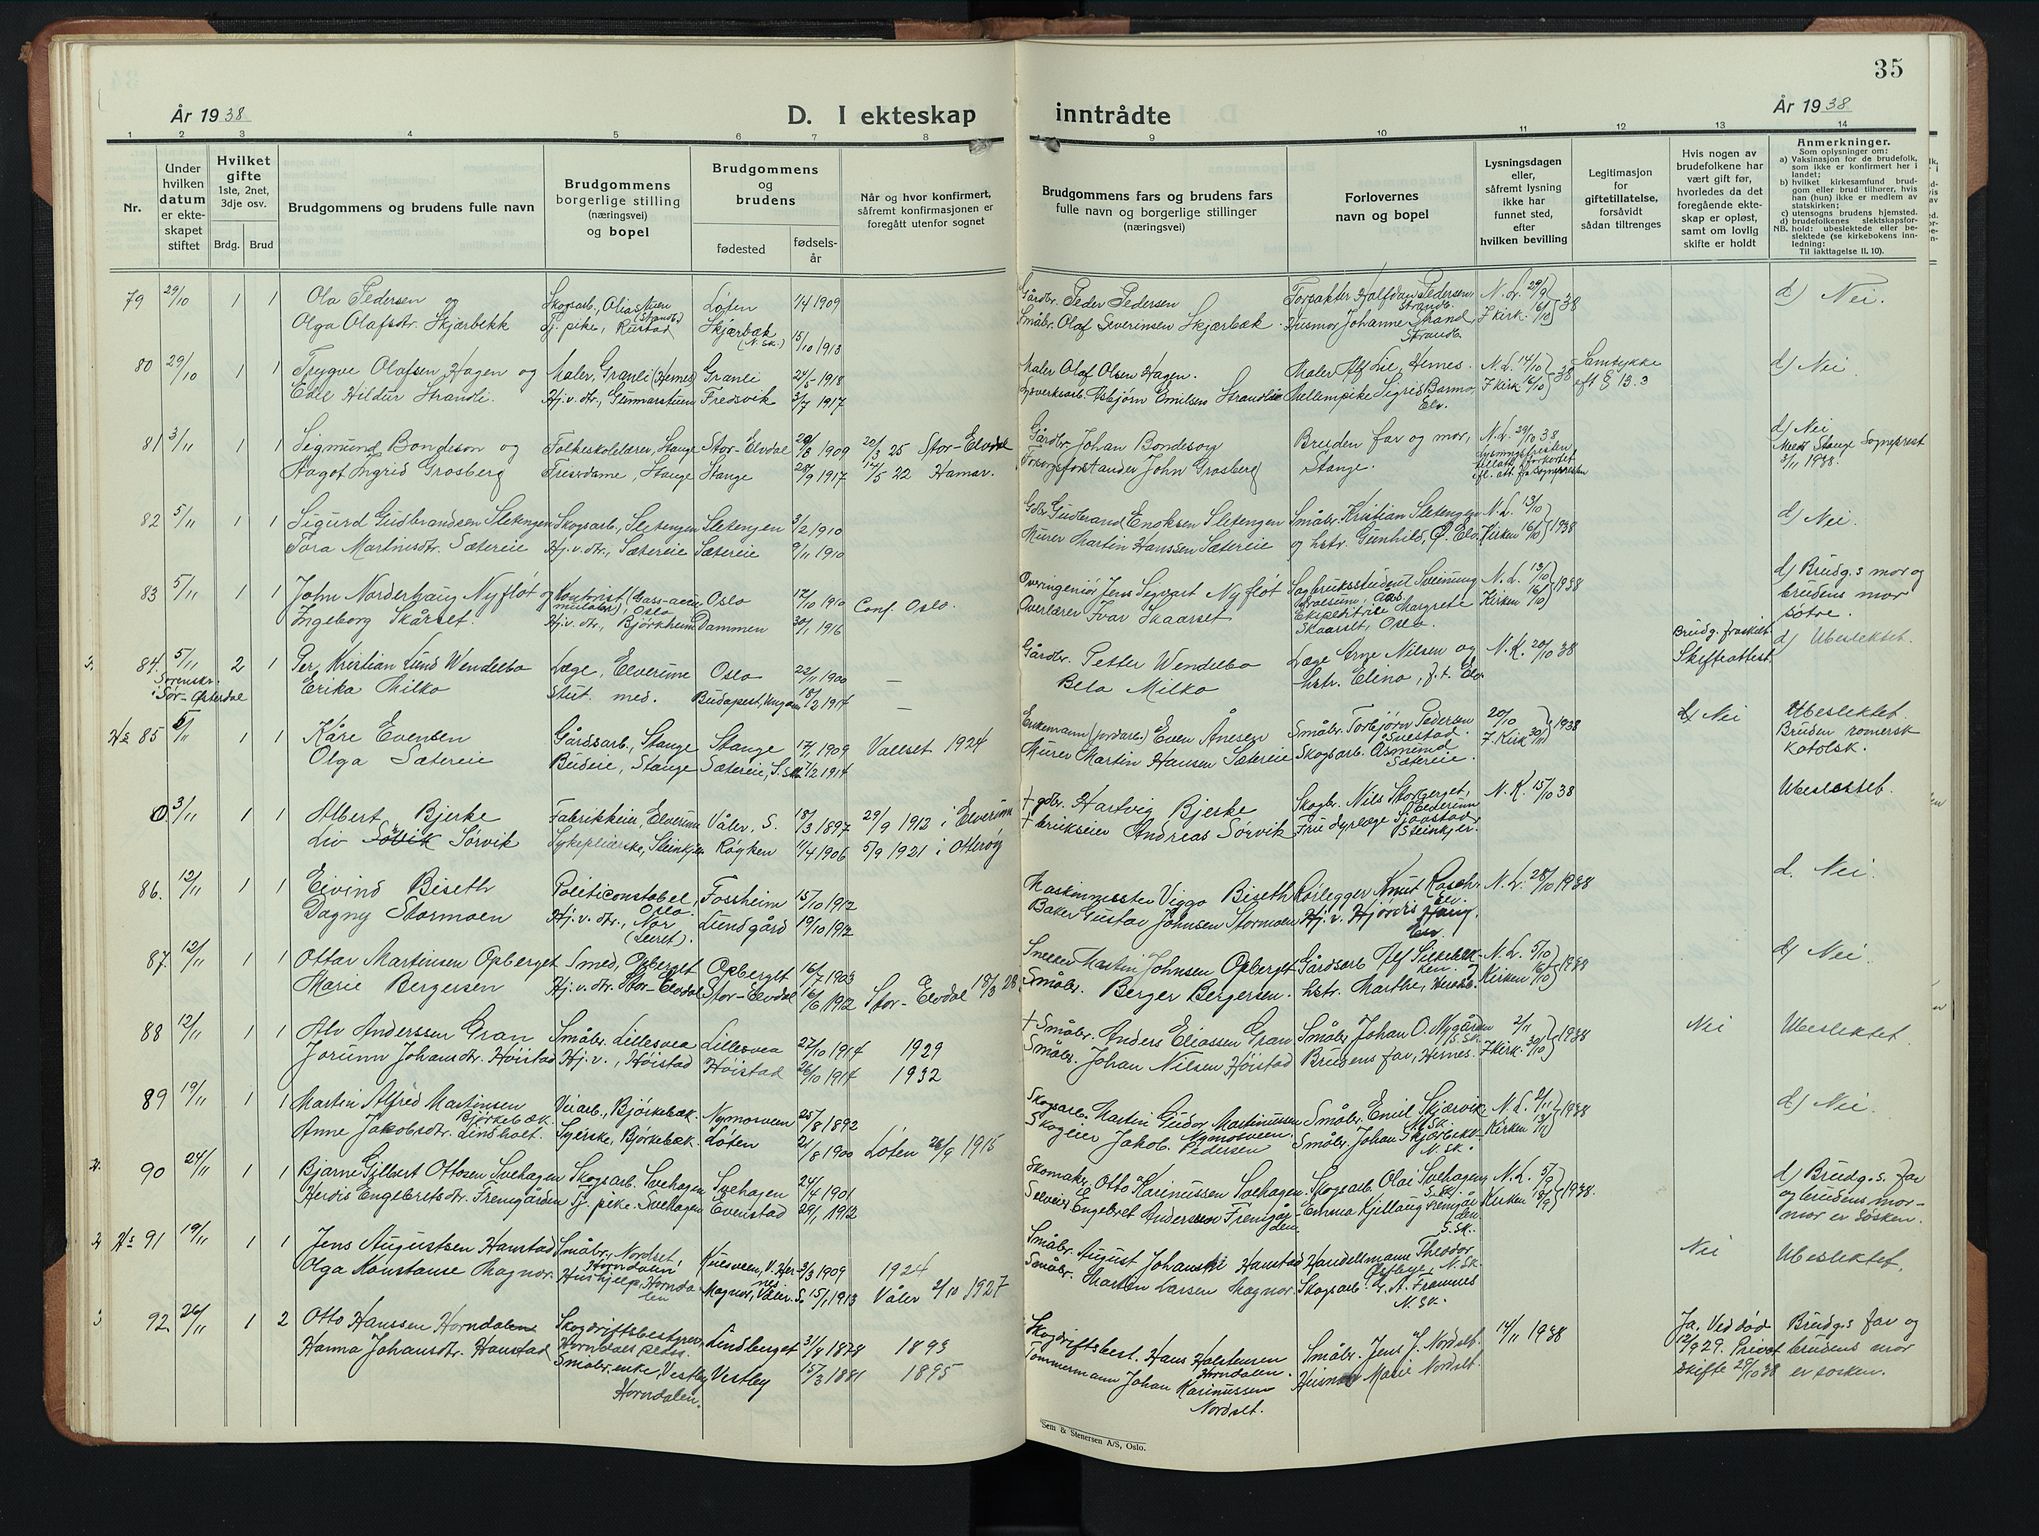 35
År 1938
D. I ekteskap inntrådte
År 1938
1 2 3 4 5 6 7 8 9 10 11 12 13 14
Nr.
Under hvilken datum er ekteskapet stiftet
Hvilket gifte 1ste, 2net, 3dje osv.
Brdg. Brud
Brudgommens og brudens fulle navn
Brudgommens borgerlige stilling (næringsvei) og bopel
Brudgommens og brudens
fødested fødselsår
Når og hvor konfirmert, såfremt konfirmasjonen er foregått utenfor sognet
Brudgommens fars og brudens fars fulle navn og borgerlige stillinger (næringsvei)
Forlovernes navn og bopel
Lysningsdagen eller, såfremt lysning ikke har funnet sted, efter hvilken bevilling
Legitimasjon for giftetillatelse, forsåvidt sådan tiltrenges
Hvis nogen av brudefolkene har vært gift før, hvorledes da det foregående ekteskap er opløst, samt om lovlig skifte er holdt
Anmerkninger.
Som oplysninger om:
a) Vaksinasjon for de brudefolk, som ikke er konfirmert her i landet;
b) hvilket kirkesamfund brudgom eller brud tilhører, hvis han (hun) ikke er medlem av statskirken;
c) utensogns brudens hjemsted.
d) brudefolkenes slektskapsforhold: ubeslektede eller beslektede (se kirkebokens innledning:
NB. Til iakttagelse II. 10).
79 29/10 1 1 Ola Pedersen og Skogsarb., Oliastuen (Strandb.) Løten 1/4 1909 Gårdbr. Peder Pedersen Forpakter Halfdan Pedersen, Strandb. N. L. 29/9 d) Nei.
Olga Olafsdtr. Skjærbekk Tj. pike, Rustad Skjærbæk (N. Sk.) 15/10 1913 Småbr. Olaf Severinsen Skjærbæk. Husmor Johanne Strand, Strandb. I kirk. 16/10 } 38
80 29/10 1 1 Trygve Olafsen Hagen og Maler, Granli (Hernes) Granli 24/5 1918 Maler Olaf Olsen Hagen. Maler Alf Lie, Hernes. N. L. 14/10 Samtykke d) Nei.
Edel Hildur Strandli. Hj. v. dtr., Gunnarstuen Fredsvik 3/7 1917 Asbjørn Emilsen Strandlie Mellempike Sigrid Barmo, Elv. I kirk 16/10 } 38 eft § 13.3
81 3/11 1 1 Sigmund Bondeson og Folkeskolelærer, Stange Stor-Elvdal 20/8 1909 20/3 25 Stor-Elvdal Gårdbr. Johan Bondeson Bruden far og mor, N. L. 29/10 38 d) Nei
Magot Ingrid Grosberg Frisørdame, Stange Stange 28/9 1917 14/5 22 Hamar. Forsorgsforstander John Grosberg Stange. Lysningsfristen Medt Stange Sogneprest 3/11 1938.
82 5/11 1 1 Sigurd Gudbrandsen Sletengen Skogsarb., Sletengen Sletengen 3/2 1910 Gdbr. Gudbrand Enoksen Sletengen Småbr. Kristian Sletengen N. L. 13/10 d) Nei.
Tora Martinsdtr. Sætereie Hj. v. dtr., Sætereie Sætereie 9/11 1910 Murer Martin Hanssen Sætereie og hstr. Gunhild, Ø. Elv. Kirken 16/10 } 1938
83 5/11 1 1 John Norderhaug Nyfløt og Kontorist, Oslo Oslo 12/10 1910 Conf. Oslo. Overingeniør Jens Segvart Nyfløt Sagbruksstudent N. L. 13/10 d) Brudg.s mor og
Ingeborg Skårset. Hj. v. dtr., Bjørkheim Dammen 30/1 1916 Overlærer Ivar Skaarset Ekspeditrise Margrete Skaarset, Oslo. Kirken 16/10 } 1938 brudens mor søtre.
84 5/11 2 1 Per Kristian Lund Wendelbo Læge, Elverum Oslo 22/11 1900 – Gårdbr. Petter Wendelbo Læge Arne Nilsen og N. K. 20/10 38 Brudg. fraskilt Skifteattest. d) Ubeslektet.
Sorenskr. i Sør-Østerdal Erika Milko Stut. med. Budapest, Ungarn 18/2 1914 – Bela Milko hstr. Elina, f. t. Elv.
Hs 85 5/11 1 1 Kåre Evensen Gårdsarb., Stange Stange 17/1 1909 Vallset 1924 Enkemann Even Ånesen Småbr. Torbjørn Pedersen 20/10 d) Nei Ubeslektet.
Olga Sætereie Budeie, Stange Sætereie, S. Sk. 7/2 1914 Murer Martin Hansen Sætereie Skogsarb. Åsmund Sætereie. I Kirk 30/10 } 1938 Bruden romersk katolsk.
0 3/11 1 1 Albert Bjerke Fabrikkeier, Elverum Våler, S. 18/3 1897 29/9 1912 i Elverum + gdbr. Hartvig Bjerke Skogbr. Nils Storberget, N. K. 15/10 38 Ubeslektet.
Liv Sørvik Sykepleierske, Steinkjer Røyken 11/4 1906 5/9 1921 i Otterøy Andreas Sørvik Steinkjer.
86. 12/11 1 1 Eivind Biseth Politiconstabel, Oslo. Fossheim 15/10 1912 Maskinmester Viggo Biseth Rørlegger Knut Rasch, Elv. N. L. 28/10 1938 d. Nei.
Dagny Stormoen Hj. v. dtr., Nor Lundgård 19/10 1912 Baker Gustav Johnsen Stormoen Hj. v. Hjørdis Haug, Elv.
87. 12/11 1 1 Ottar Martinsen Opberget Smed, Opberget Opberget 16/7 1903 Snekker Martin Johnsen Opberget Gårdsarb Alf N. L. 5/10 d) Nei.
Marie Bergersen Hj. v. dtr. Stor-Elvdal Stor-Elvdal 16/6 1912 Stor-Elvdal 18/3 28. Småbr. Berger Bergersen. hstr. Marthe, Kirken 16/10 } 1938
88 12/11 1 1 Alv Anderssen Gran Småbr. Lillesvea Lillesvea 27/10 1914 1929 + Småbr. Anders Eliassen Gran Småbr. Johan O. Nygården 2/11 Nei Ubeslektet.
Jorunn Johansdtr. Høistad Hj. v., Høistad Høistad 26/10 1914 1932 Småbr. Johan Nilsen Høistad Brudens far, Hernes. I kirk. 30/10 } 1938
89 19/11 1 1 Martin Alfred Martinsen Bjørkebæk Veiarb., Bjørkebæk. Nymosveen 25/8 1892 Skogsarb. Martin Gudor Martinussen Nymosveen Småbr. Emil Skjærvik, N. Sk. N. L. 2/11 d) Nei.
Anne Jakobsdtr. Lindholt. Syerske, Bjørkebæk. Løten 21/8 1900 Løten 26/9 1915 Skogeier Jakob Pedersen Småbr. Johan Skjørbekk N. Sk. Kirken 13/11 } 1938
90 24/11 1 1 Bjarne Gilbert Ottosen Svehagen Skogsarb. Svehagen Svehagen 24/4 1906 Skomakr. Otto Karinussen Svehagen Skogsarb. Olai Svehagen S. Sk. N. L. 5/9 d) Brudg.s. far
Herdis Engebretsdtr. Fremgården Tj. pike. Svehagen Evenstad 29/1 1912 Selveier Engebret Anderssen Fremgården Emma Kjellaug Fremgården S. Sk. Kirken 18/9 } 1938. og brudens mormor er søsken.
Hs 91 19/11 1 1 Jens Augustsen Hanstad Småbr., Nordset, Horndalen Kulsveen, V. Hernes. 3/3 1909 1924 Småbr. August Johanski Hanstad Handelsmann Theodor N. Sk. Nei Ubeslektet.
Olga Konstanse Magnor Hushjelp, Horndalen Magnor, Våler. S. 15/1 1913 Våler 2/10 1927 Småbr. Marten Larsen Magnor Skogsarb. G. A. Framnes N. Sk.
92. 26/11 1 2 Otto Hanssen Horndalen Skogdriftsbestyrer, Lindberget 31/8 1878 1893 Skogdriftsbest. Hans Halstensen Horndalen. Småbr. Jens J. Nordset. 14/11 1938 Ja. Ved død Brudg.s far og
Hanna Johansdtr. Hanstad Småbr. enke Vestby, Horndalen. Vestby 15/3 1881 1895 Tømmermann Johan Karinussen Nordset. Husmor Marie Nordset. 12/9 29. Privat skifte 29/10 38 brudens mor er søsken.
Sem & Stenersen A/S, Oslo.